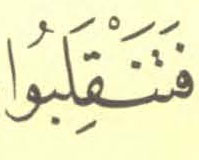 فَتَنْقَلِبُوا